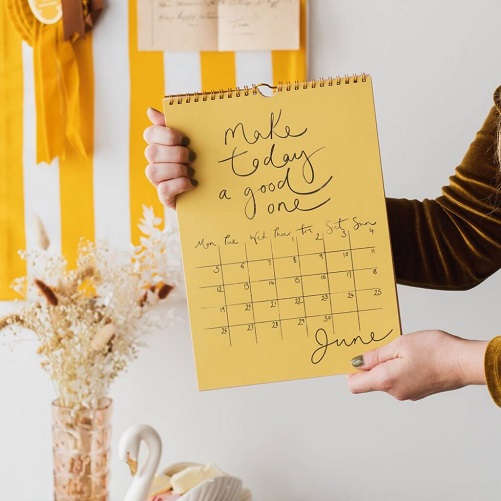 Make
today
a good
one
Mon Tue Wed Thurs Fri Sat Sun
1 2 3 4
5 6 7 8 9 10 11
12 13 14 15 16 17 18
19 20 21 22 23 24 25
26 27 28 29 30
June